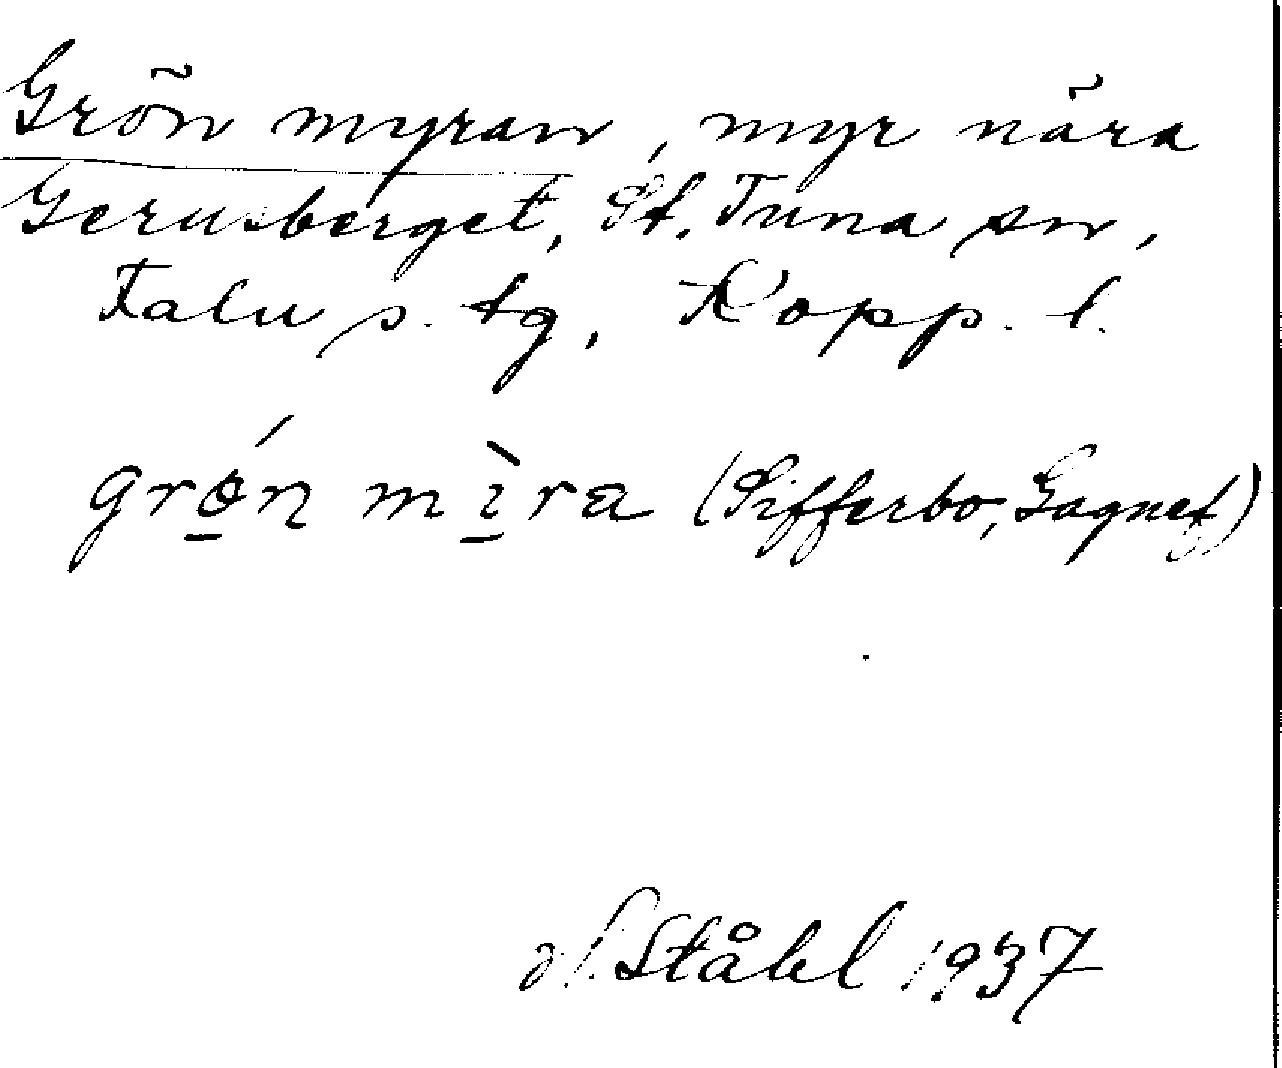 Grön myran, myr nära
Gerusberget, St. Tuna sn,
Falu s. tg, Kopp. l.
grǿn mìra (Sifferbo, Gagnef)
Ståhl 1937